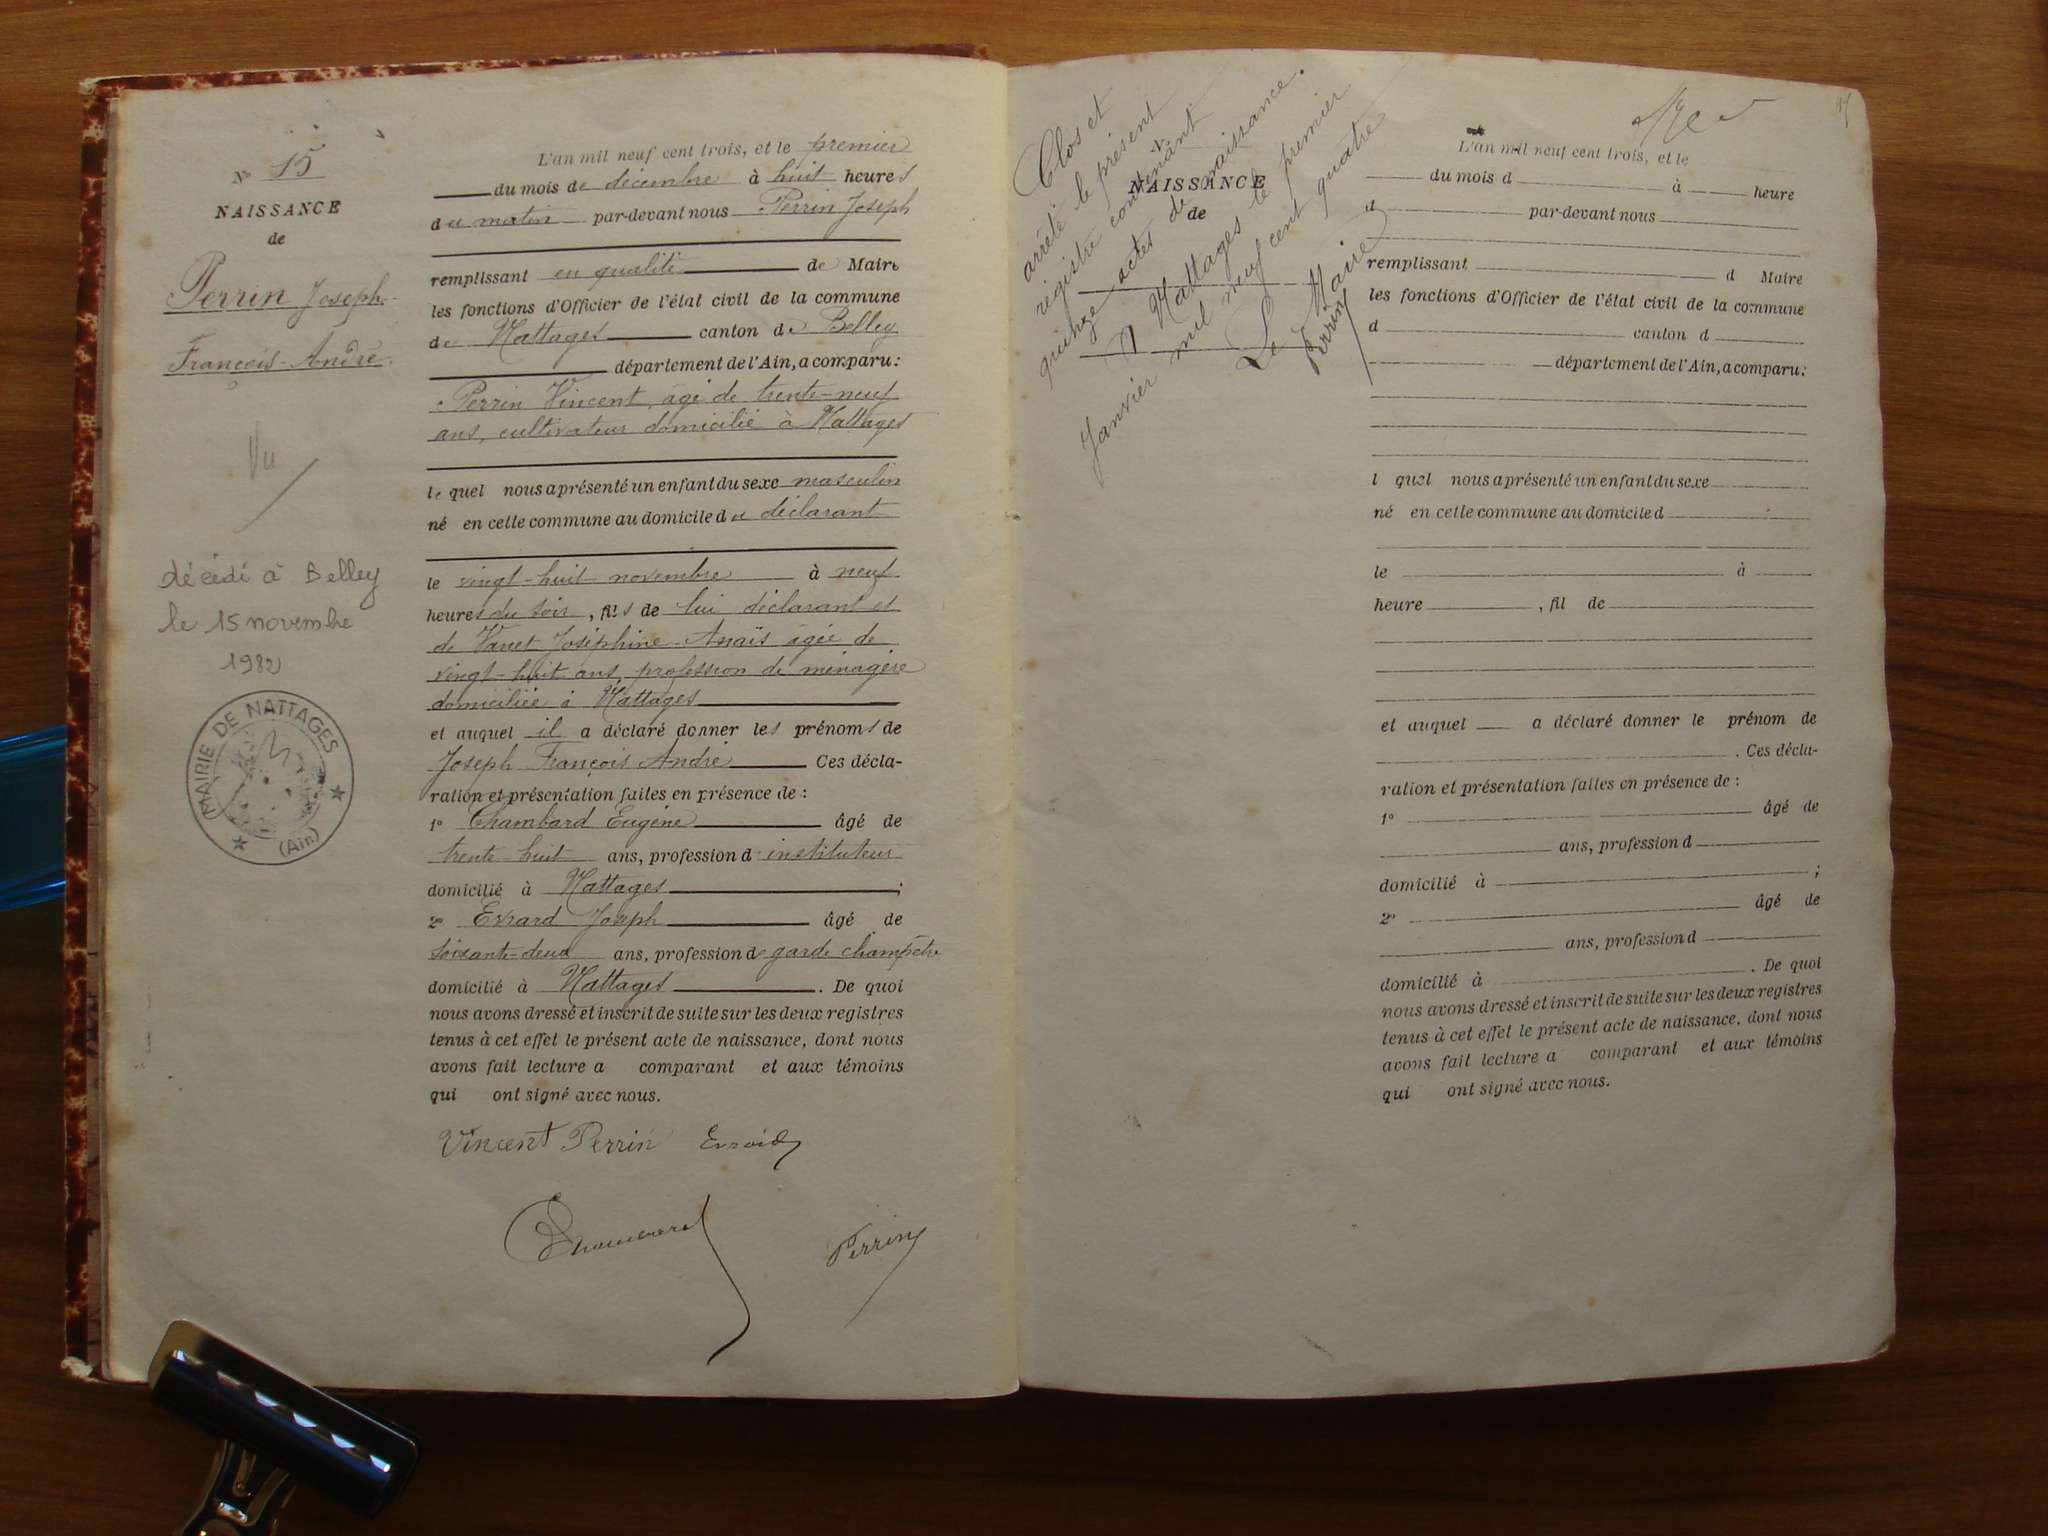 N° 15
NAISSANCE
de
Perrin Joseph-
François-André.
Vu
décédé à Belley
le 15 novembre
1982
MAIRIE DE NATTAGES
(Ain)
L'an mil neuf cent trois, et le premier
du mois de décembre à huit heures
du matin par-devant nous Perrin Joseph
remplissant en qualité de Maire
les fonctions d'Officier de l'état civil de la commune
de Nattages canton de Belley
département de l'Ain, a comparu:
Perrin Vincent, âgé de trente-neuf
ans, cultivateur domicilié à Nattages
lequel nous a présenté un enfant du sexe masculin
né en cette commune au domicile du déclarant
le vingt-huit novembre à neuf
heures du soir, fils de lui déclarant et
de Vanet Joséphine-Anaïs âgée de
vingt-huit ans, profession de ménagère
domiciliée à Nattages
et auquel il a déclaré donner les prénoms de
Joseph François André Ces décla-
ration et présentation faites en présence de :
1° Chambard Eugène âgé de
trente-huit ans, profession d'instituteur
domicilié à Nattages ;
2° Evrard Joseph âgé de
soixante-deux ans, profession de garde champêtre
domicilié à Nattages . De quoi
nous avons dressé et inscrit de suite sur les deux registres
tenus à cet effet le présent acte de naissance, dont nous
avons fait lecture a comparant et aux témoins
qui ont signé avec nous.
Vincent Perrin
Perrin
Clos et
arrêté le présent
registre contenant
quinze actes de naissance.
A Nattages le premier
Janvier mil neuf cent quatre
Le Maire
Perrin
N°
NAISSANCE
de
L'an mil neuf cent trois, et le
du mois d à heure
d par-devant nous
remplissant d Maire
les fonctions d'Officier de l'état civil de la commune
d canton d
département de l'Ain, a comparu:
l quel nous a présenté un enfant du sexe
né en cette commune au domicile d
le à
heure , fil de
et auquel a déclaré donner le prénom de
. Ces décla-
ration et présentation faites en présence de :
1° âgé de
ans, profession d
domicilié à ;
2° âgé de
ans, profession d
domicilié à . De quoi
nous avons dressé et inscrit de suite sur les deux registres
tenus à cet effet le présent acte de naissance, dont nous
avons fait lecture a comparant et aux témoins
qui ont signé avec nous.